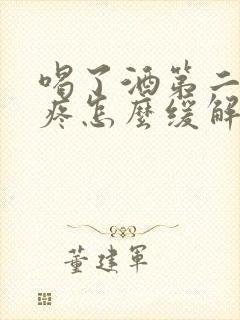 喝了酒第二
疼怎麼缓解
董建军